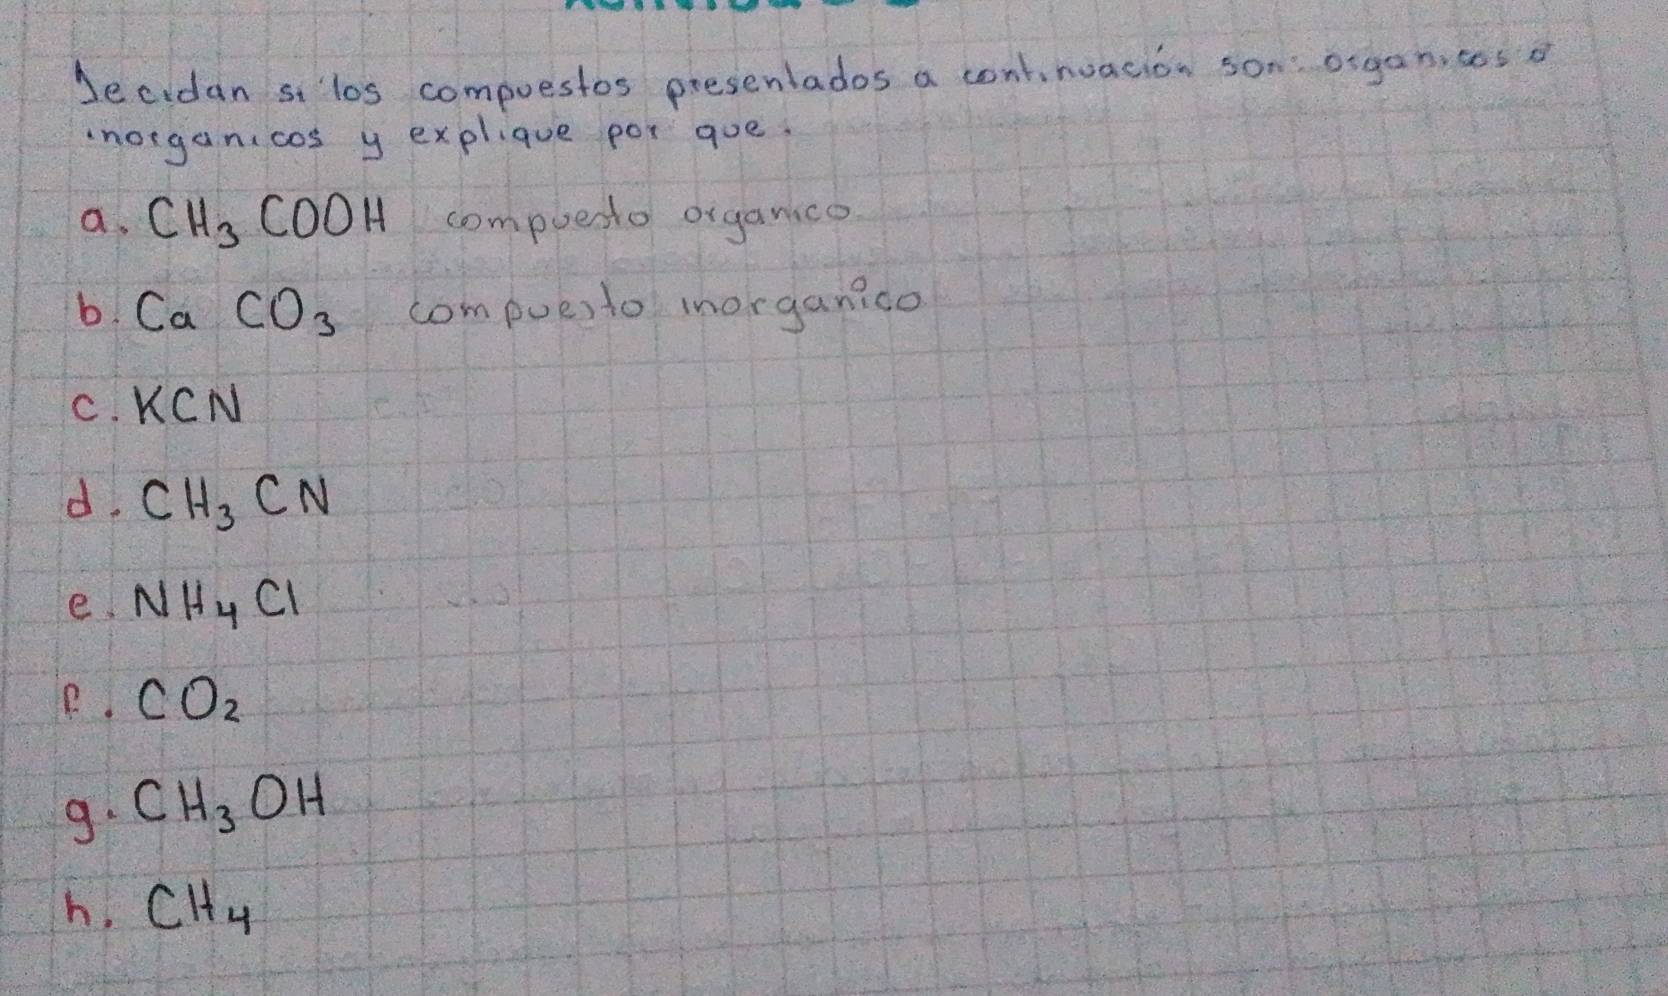 Decidan si los compuestos presentados a continuación son: organicos o
inorganicos y explique por que.
a. CH₃ COOH compuesto organico
b. Ca CO₃ compuesto inorganico
c. KCN
d. CH₃ CN
e. NH₄ Cl
f. CO₂
g. CH₃ OH
h. CH₄